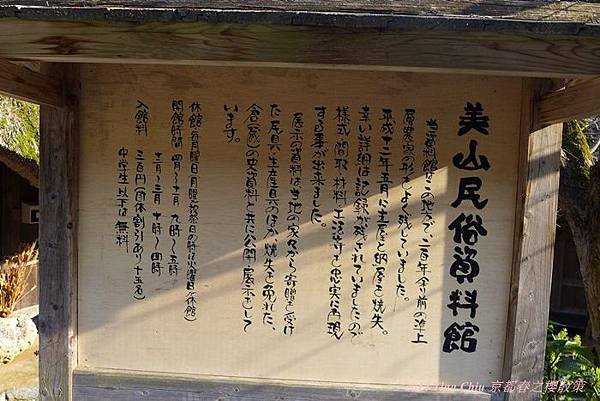 美山民俗資料館
当資料館はこの地方で、二百年余り前の途上
層農家の形をよく残していました。
平成十二年五月に主屋と納屋を焼失。
幸い詳細な記録が残されていましたので
様式、間取、材料、工法等を忠実に再現
する事が出来ました。
展示の資料は当地の家々から寄贈を受け
た民具、生産具のほか焼失を免れた、
倉(蔵)の史資料と共に公開、展示をして
います。
休館(毎月曜日、月曜祝祭日の時は火曜日が休館)
開館時間 四月〜十一月 九時〜五時
十二月〜三月 十時〜四時
入館料 三百円(団体割引あり十五名)
中学生以下は無料
Chiu 京都春之櫻散策